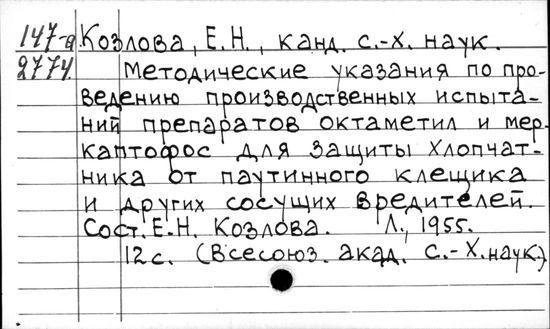 147-а Козлова, Е.Н., канд. с.-х. наук.
2774 Методические указания по про-
ведению производственных испыта-
ний препаратов октаметил и мер-
каптофос для защиты хлопчат-
ника от паутинного клещика
и других сосущих вредителей.
Сост. Е.Н. Козлова. Л., 1955.
12 с. (Всесоюз. акад. с.-х. наук.)